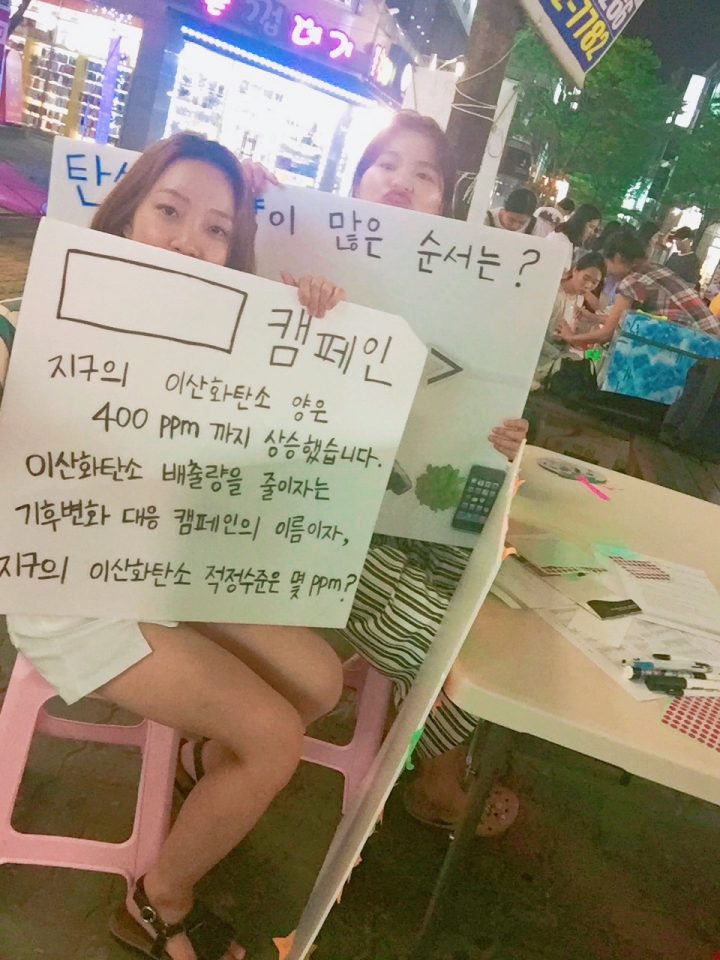 2-7782
많은 순서는?
>
캠페인
지구의 이산화탄소 양은
400 ppm 까지 상승했습니다.
이산화탄소 배출량을 줄이자는
기후변화 대응 캠페인의 이름이자,
지구의 이산화탄소 적정수준은 몇 ppm?